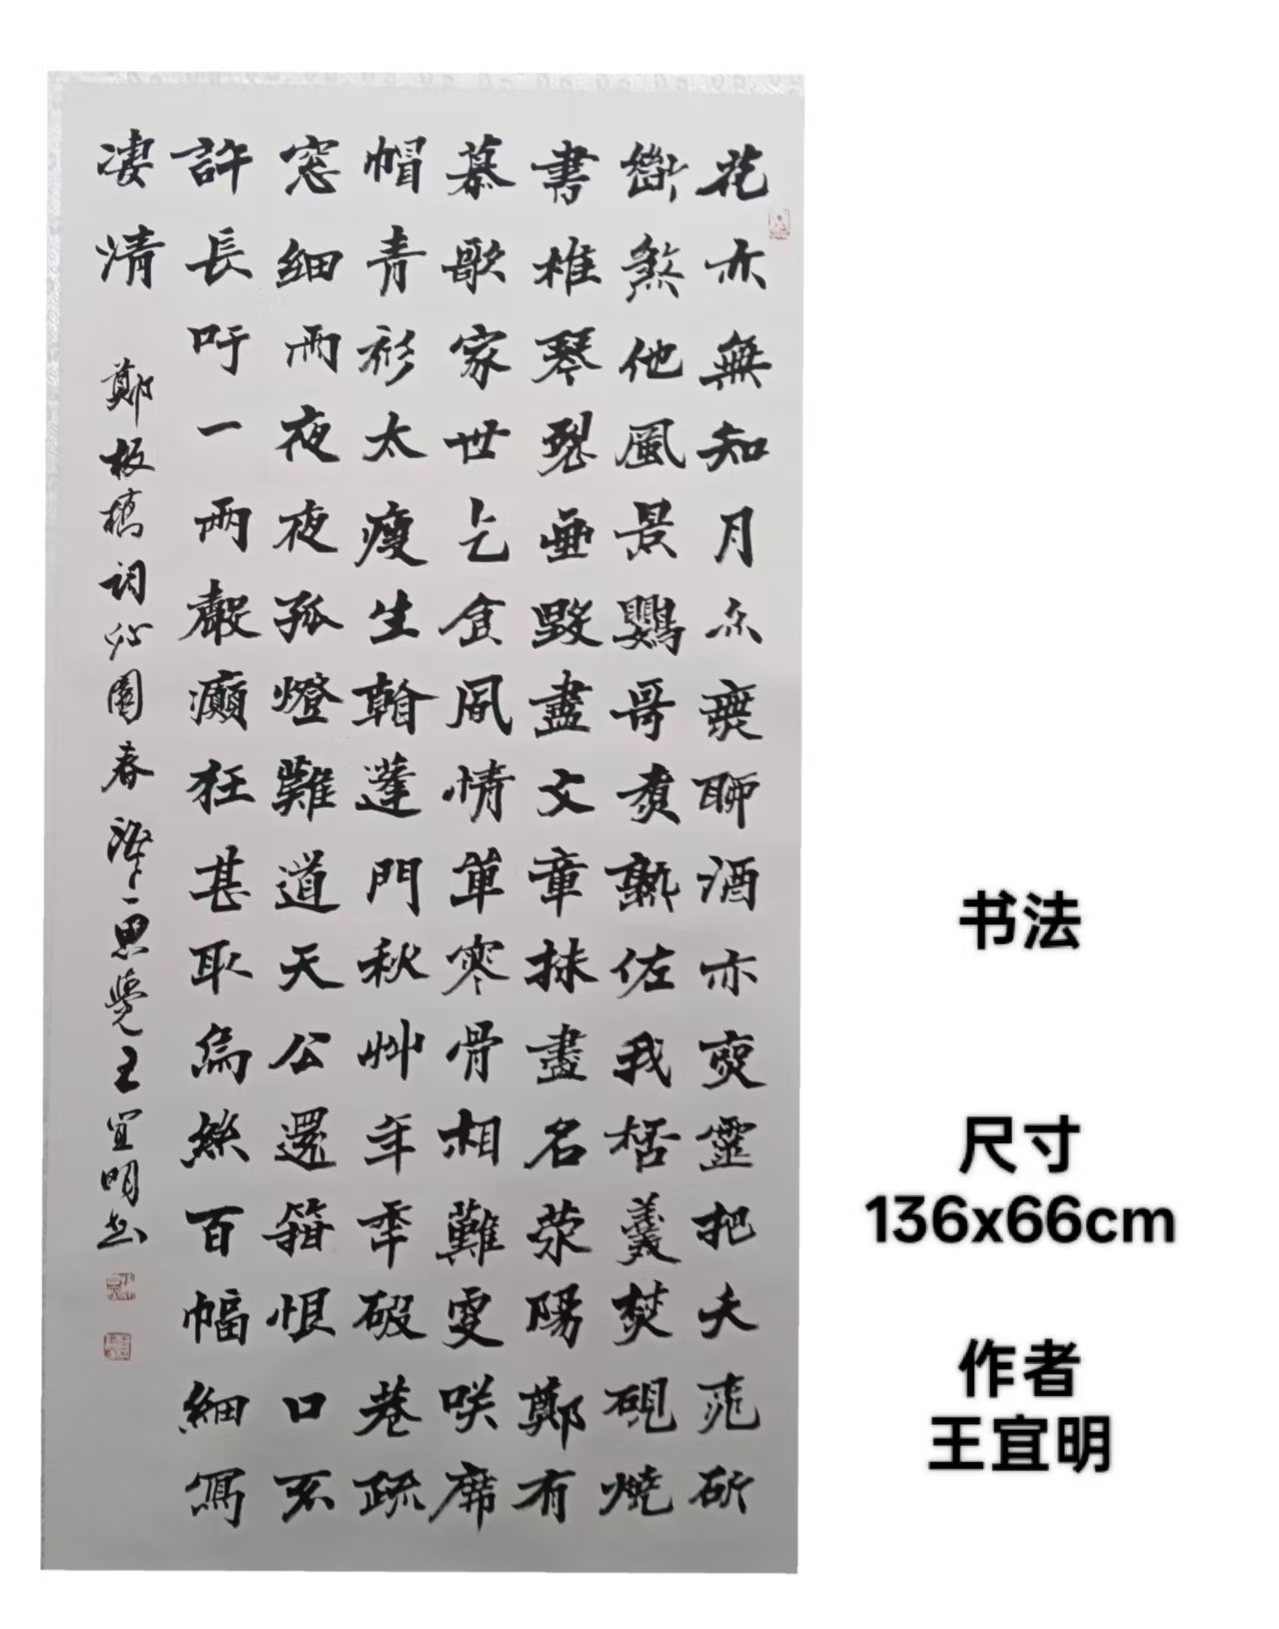 花亦無知月亦無聊酒亦無靈把夭桃斫
斷煞他風景鸚哥煮熟佐我桮羹焚硯燒
書椎琴裂畫毀盡文章抹盡名滎陽鄭有
慕歌家世乞食風情單寒骨相難更咲席
帽青衫太瘦生看蓬門秋艸年秊破巷疏
窓細雨夜夜孤燈難道天公還箝恨口不
許長吁一兩聲癲狂甚取烏絲百幅細寫
凄清
鄭板橋詞沁園春 思覺王宜明书
书法
尺寸
136x66cm
作者
王宜明